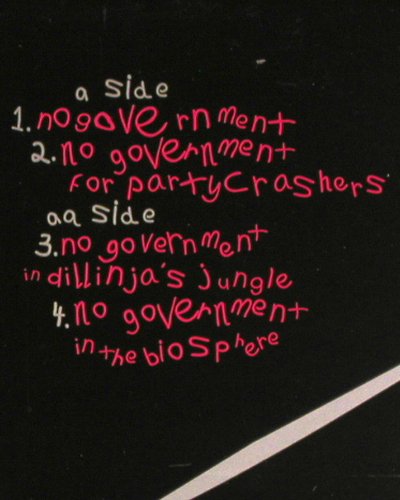 a side
1. no government
2. no government
for partycrashers
aa side
3. no government
in dillinja's jungle
4. no government
in the biosphere